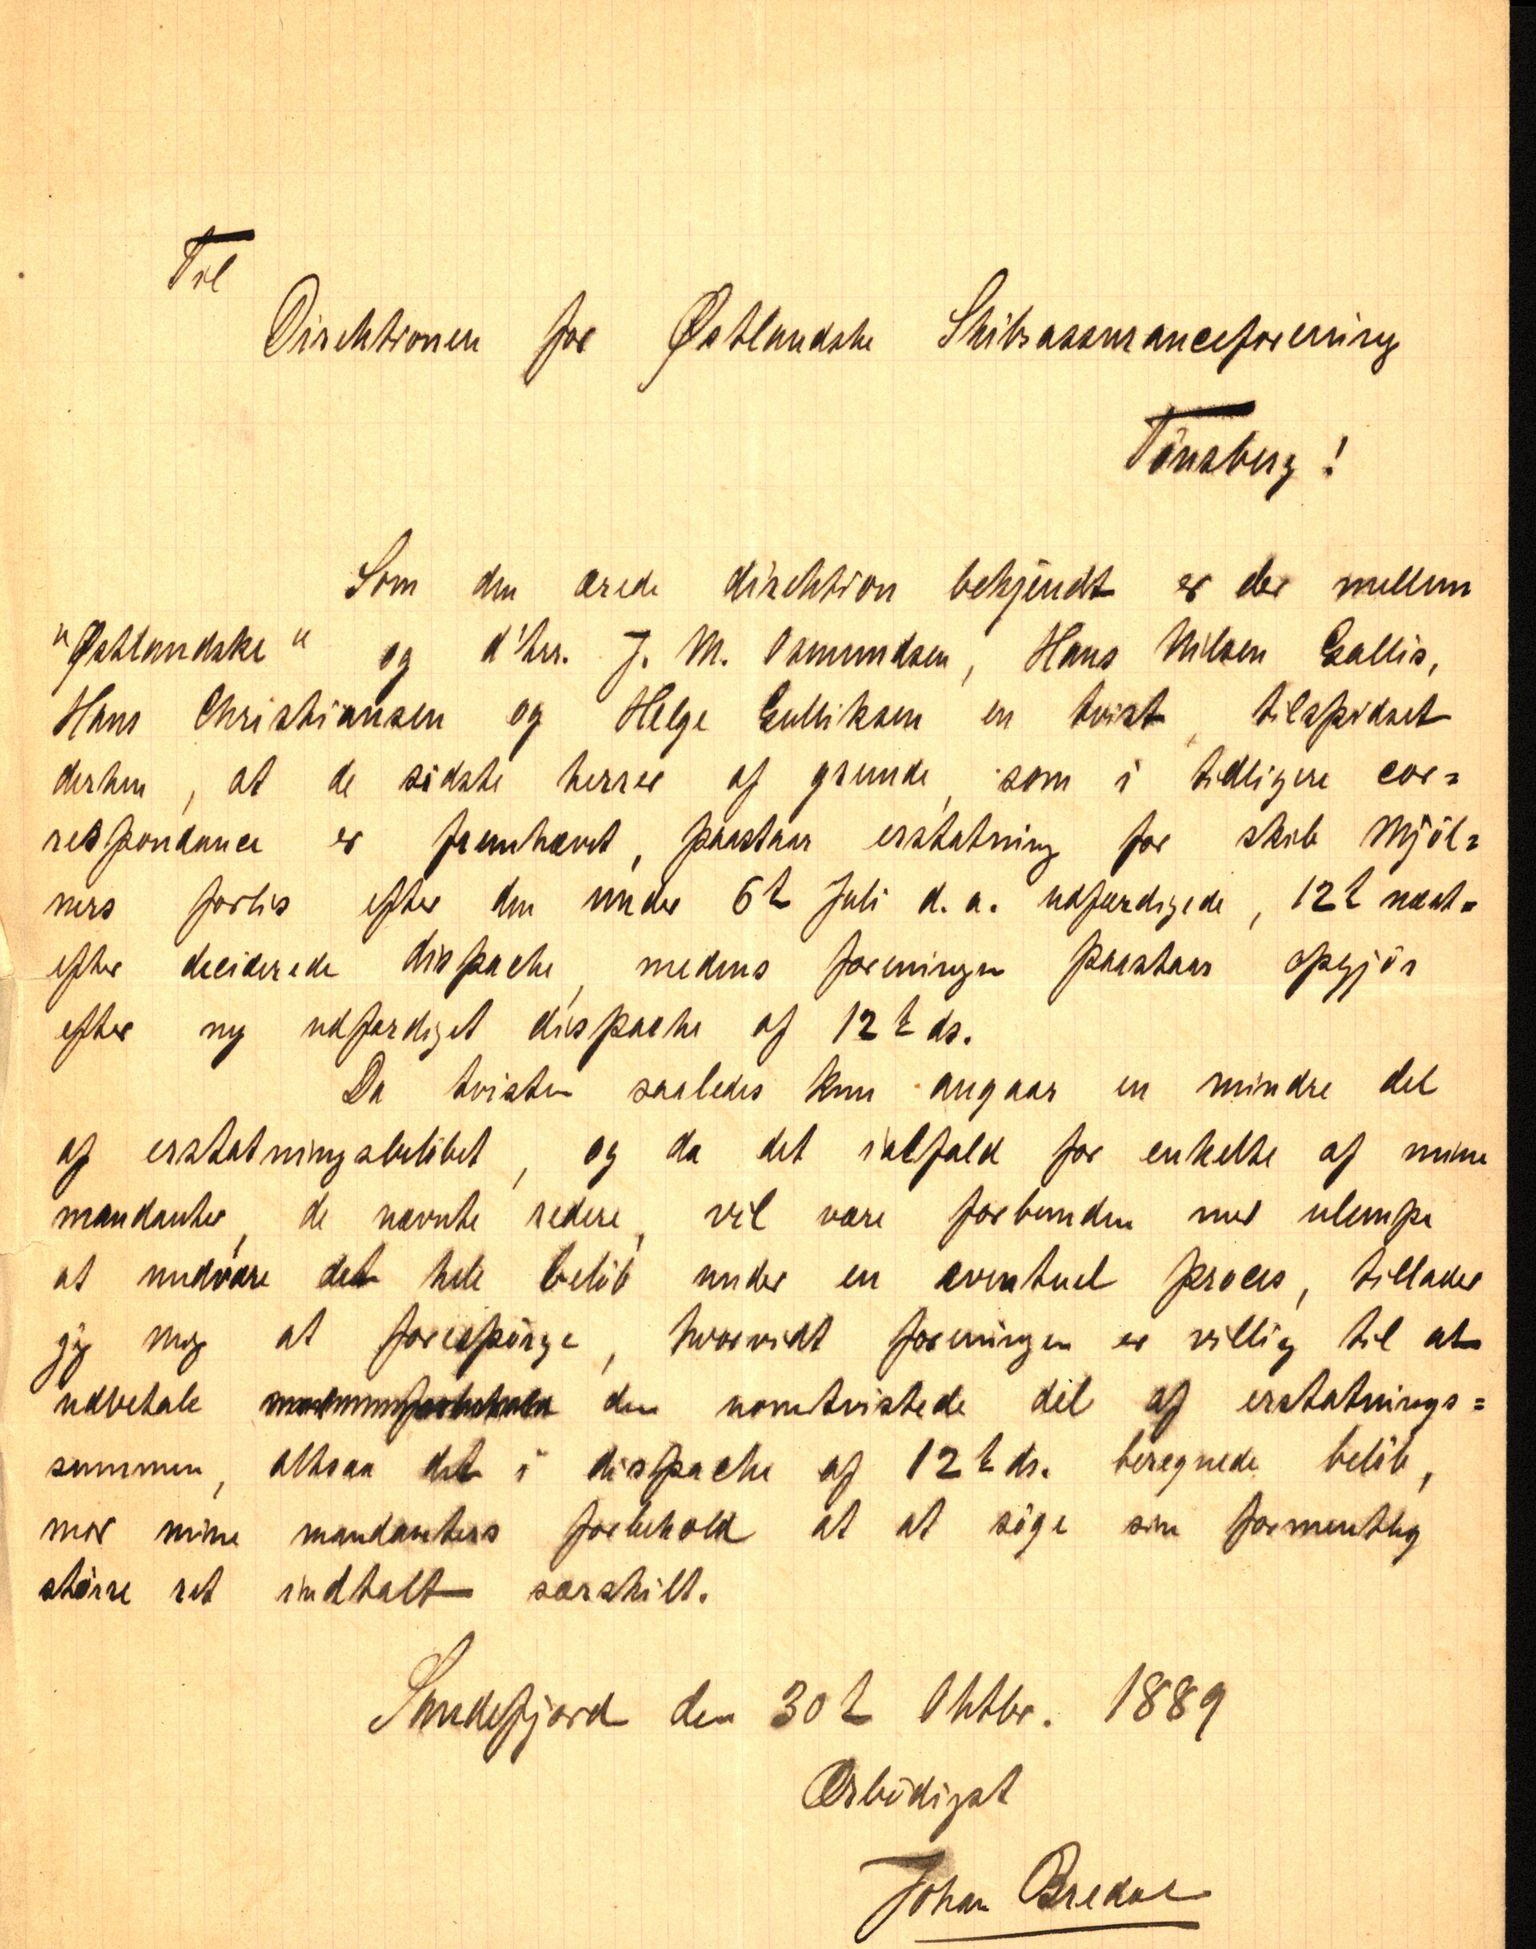 Til
Direktionen for Østlandske Skibsassuranceforening
Tönsberg!
Som den ærede direktion bekjendt er der mellem
"Østlandske" og d'hrr. J. M. Osmundsen, Hans Nilsen Gallis,
Hans Christiansen og Helge Gulliksen en tvist, tilspidset
derhen, at de sidste herrer af grunde, som i tidligere cor=
respondance er fremhævet, paastaar erstatning for skib Mjöl=
ners forlis efter den under 6t Juli d. a. udfærdigede, 12t næst=
efter deciderede dispache, medens foreningen paastaar opgjör
efter ny udfærdiget dispache af 12t ds.
Da tvisten saaledes kun angaar en mindre del
af erstatningsbelöbet, og da det ialfald for enkelte af mine
mandanter, de nævnte redere, vil være forbunden med ulempe
at undvære det hele belöb under en eventuel proces, tillader
jeg mig at forespörge, hvorvidt foreningen er villig til at
udbetale den uomtvistede del af erstatnings=
summen, altsaa det i dispache af 12t ds. beregnede belöb,
med mine mandanters forbehold at at söge sin formentlig
större ret indtalt særskilt.
Sandefjord den 30t Oktbr. 1889
Ærbödigst
Johan Bredal